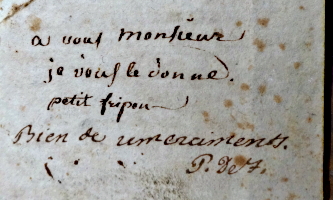 a vous monsieur
je vous le donne.
petit fripon
Bien de remerciments.
P. de F.